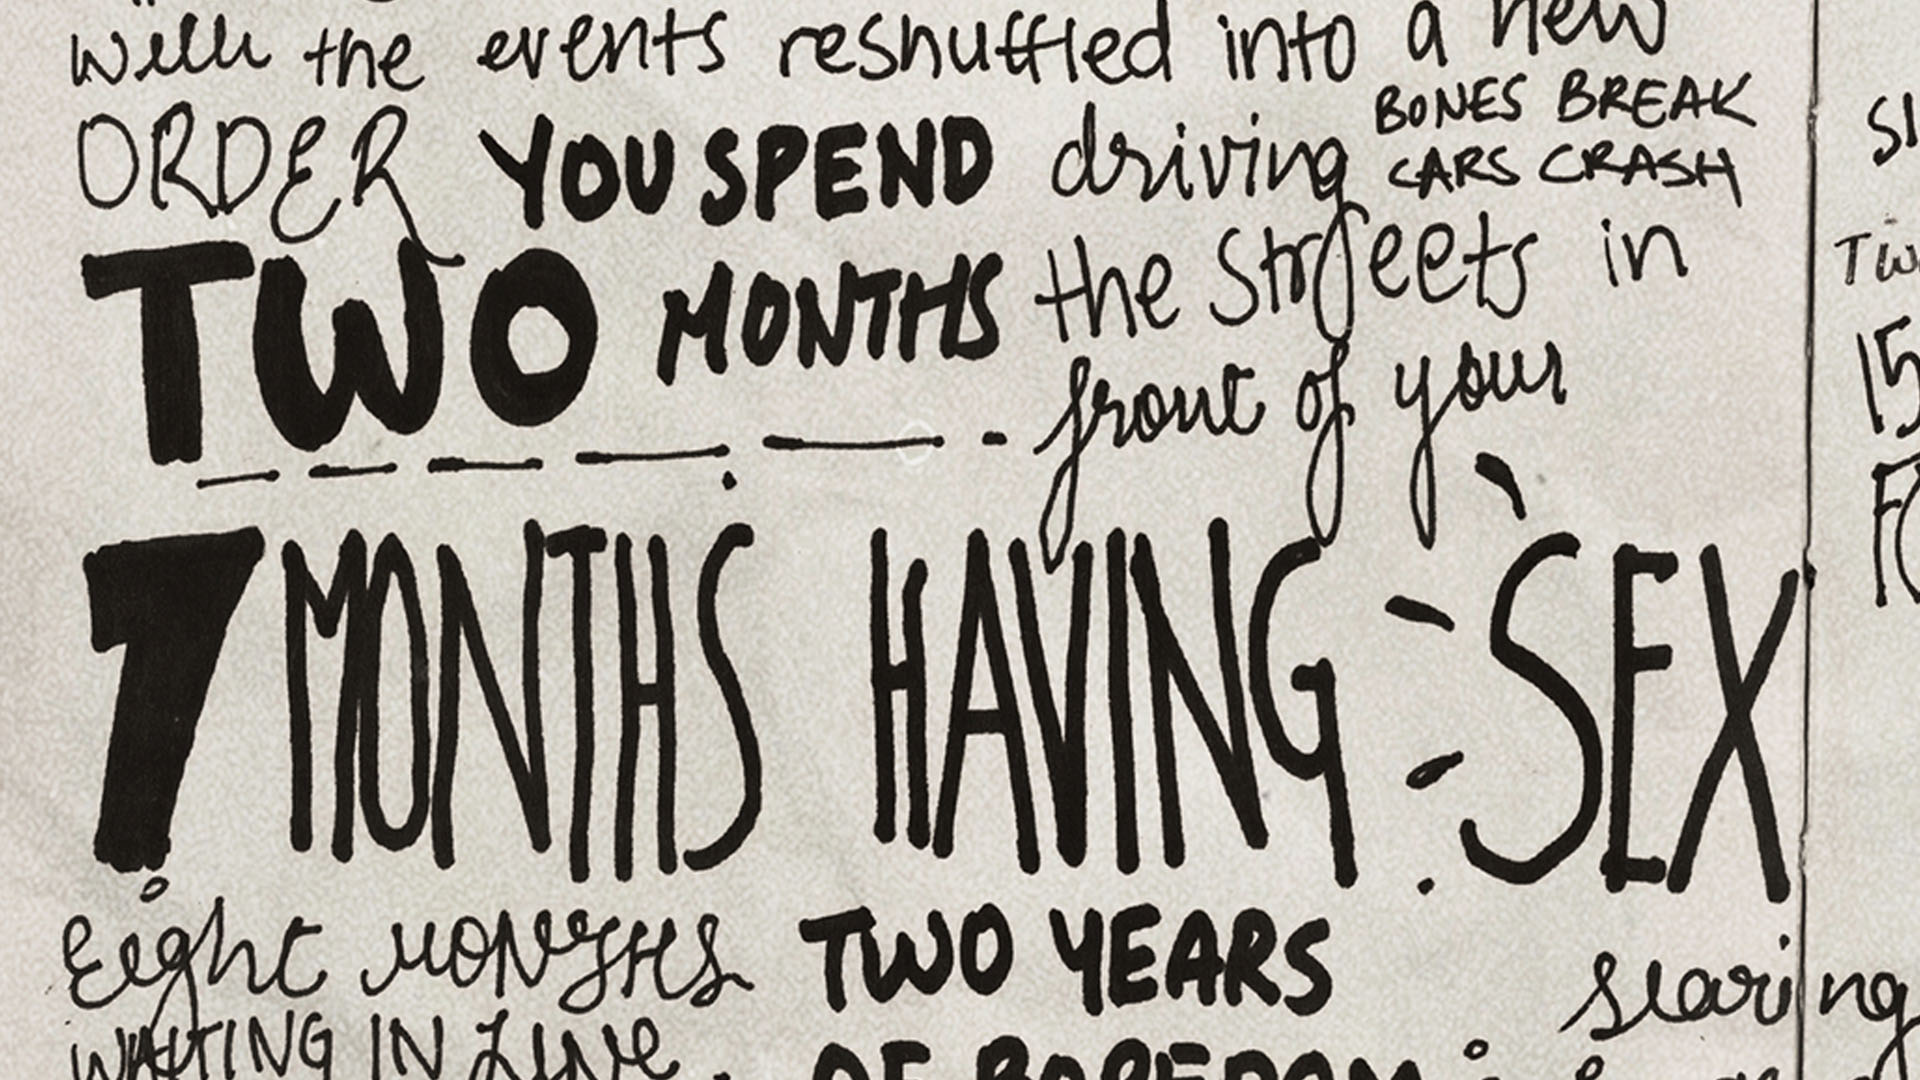 with the events reshuffled into a new
ORDER YOU SPEND driving
BONES BREAK
CARS CRASH
TWO MONTHS the streets in
front of your
7 MONTHS HAVING SEX
Eight MONTHS TWO YEARS
WAITING IN LINE OF BOREDOM